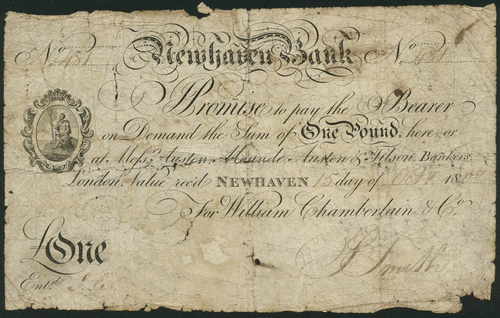 No. 481 Newhaven Bank No. 481
I Promise to pay the Bearer
on Demand the Sum of One Pound, here or
at Messrs. Austen, Maunde, Austen & Tilson, Bankers
London. Value rec'd NEWHAVEN 15 day of 18
For William Chamberlain & Co.
£ One
Entd.